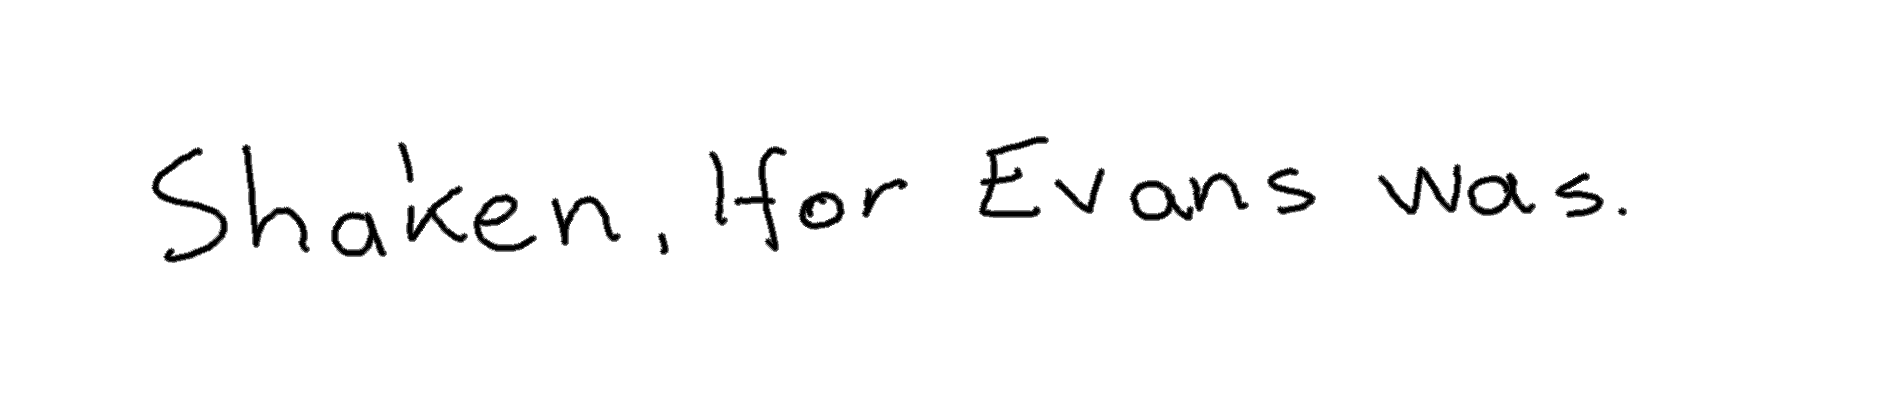 Shaken, If for Evans was.